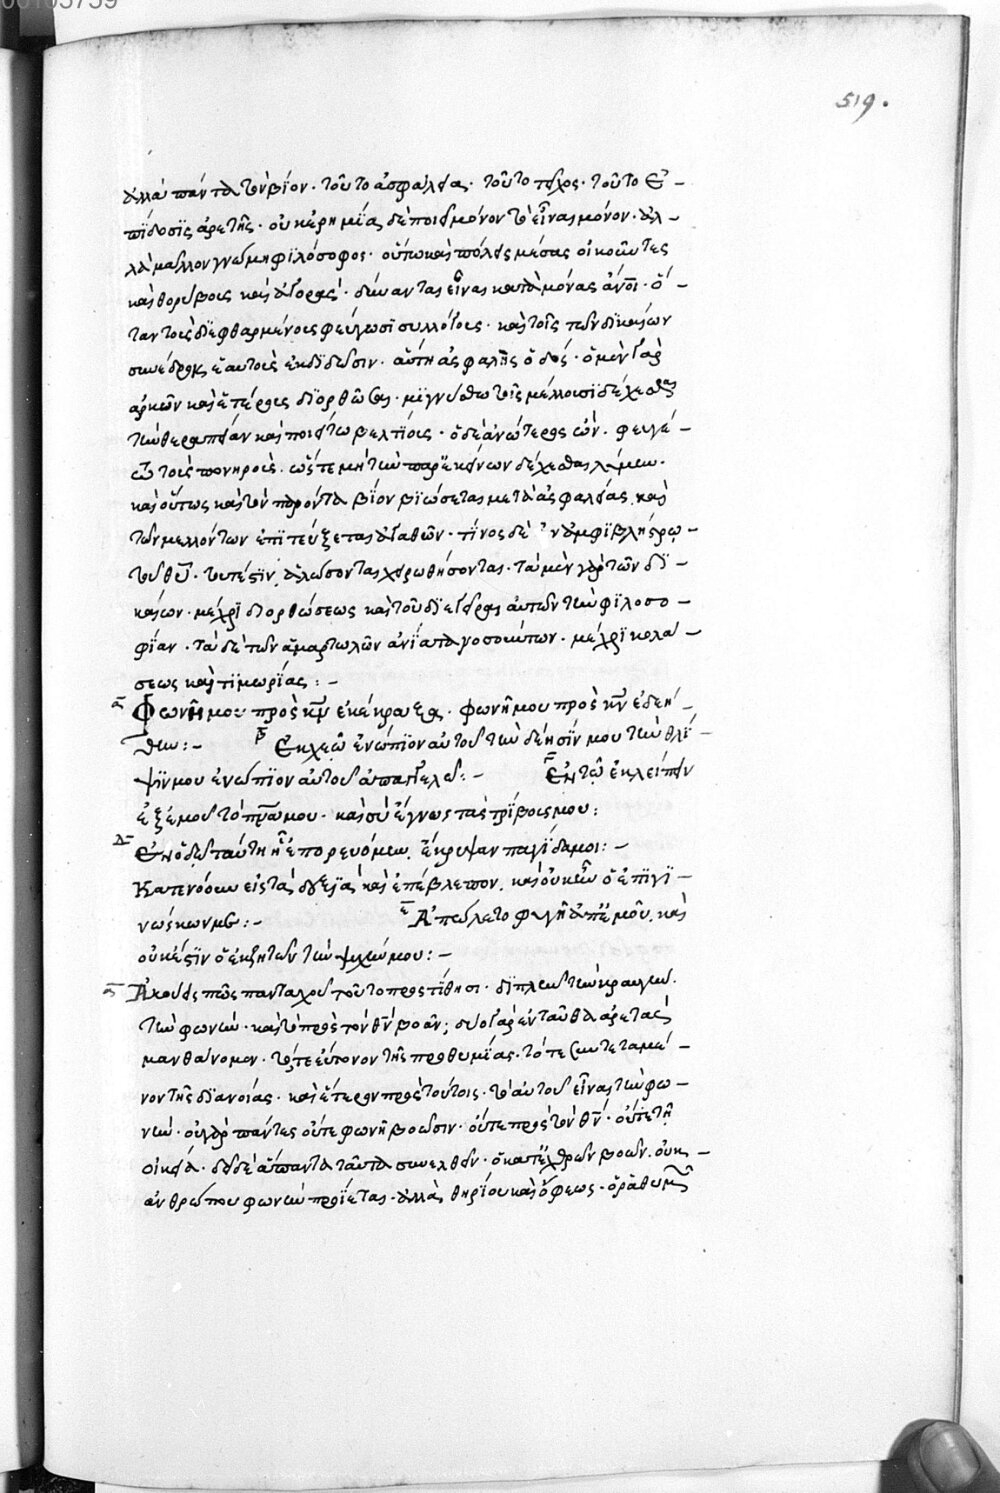 00103739
519.
ἀλλὰ πάντα τὸν βίον· τοῦτο ἀσφάλεια· τοῦτο τεῖχος· τοῦτο ἐ–
πίδοσις ἀρετῆς· οὐκ ἐρημίας δὲ ποιεῖ μόνον τὸ εἶναι μόνον· ἀλ–
λὰ μᾶλλον γνώμη φιλόσοφος· οὕτω καὶ πόλεις μέσας οἰκοῦντες
καὶ θορύβοις καὶ ἀγοραῖς· δύνανται εἶναι κατὰ μόνας ἄνοι· ὅ–
ταν τοὺς διεφθαρμένους φεύγωσι συλλόγους· καὶ τοῖς τῶν δικαίων
συνέδροις ἑαυτοὺς ἐκδιδῶσιν· αὕτη ἀσφαλὴς ὁδός· ὁ μὲν γὰρ
ἀρκῶν καὶ ἑτέρους διορθῶσαι· μιγνύσθω τοῖς μέλλουσι δέχεσθαι
τὴν θεραπείαν καὶ ποιείτω βελτίους· ὁ δὲ ἀνώτερος ὢν· φευγέ–
τω τοὺς πονηροὺς· ὥστε μὴ τὴν παρ' ἐκείνων δέχεσθαι λύμην·
καὶ οὕτως καὶ τὸν παρόντα βίον βιώσεται μετὰ ἀσφαλείας, καὶ
τῶν μελλόντων ἐπιτεύξεται ἀγαθῶν· τίνος δὲ ἐν ἀμφιβλήστρῳ–
τοῦ θυ· τουτέστιν, ἁλώσονται χειρωθήσονται· τὰ μὲν γὰρ τῶν δι–
καίων· μέχρι διορθώσεως καὶ τοῦ διεγεῖραι αὐτῶν τὴν φιλοσο–
φίαν· τὰ δὲ τῶν ἁμαρτωλῶν ἀνίατα νοσούντων· μέχρι κολά–
σεως καὶ τιμωρίας :–
α Φωνῇ μου πρὸς κν ἐκέκραξα· φωνῇ μου πρὸς κν ἐδεή–
θην :– β Ἐκχεῶ ἐνώπιον αὐτοῦ τὴν δέησίν μου τὴν θλί–
ψιν μου ἐνώπιον αὐτοῦ ἀπαγγελῶ :– γ Ἐν τῷ ἐκλείπειν
ἐξ ἐμοῦ τὸ πνα μου· καὶ σὺ ἔγνως τὰς τρίβους μου :
Δ Ἐν ὁδῷ ταύτῃ ᾗ ἐπορευόμην, ἔκρυψαν παγίδα μοι :–
Κατενόουν εἰς τὰ δεξιὰ καὶ ἐπέβλεπον, καὶ οὐκ ἦν ὁ ἐπιγι–
νώσκων με :– ε Ἀπώλετο φυγὴ ἀπ' ἐμοῦ, καὶ
οὐκ ἔστιν ὁ ἐκζητῶν τὴν ψυχήν μου :–
α Ἀκούεις πῶς πανταχοῦ τοῦτο προστίθησι· διπλῶν τὴν κραυγὴν.
τὴν φωνὴν· καὶ τὸ πρὸς τὸν θν βοᾶν; δύο γὰρ ἐνταῦθα ἀρετὰς
μανθάνομεν· τό, τε εὔτονον τῆς προθυμίας· τό τε συντεταμέ–
νον τῆς διανοίας· καὶ ἕτερον πρὸς τούτοις· τὸ αὐτοῦ εἶναι τὴν φω–
νὴν· οὐ γὰρ πάντες οὔτε φωνῇ βοῶσιν· οὔτε πρὸς τὸν θν· οὔτε τῇ
οἰκείᾳ· δεῖ δὲ ἅπαντα ταῦτα συνελθεῖν· ὁ κατ' ἐχθρῶν βοῶν, οὐκ–
ἀνθρώπου φωνὴν προΐεται· ἀλλὰ θηρίου καὶ ὄφεως· ὁ ῥάθυμος